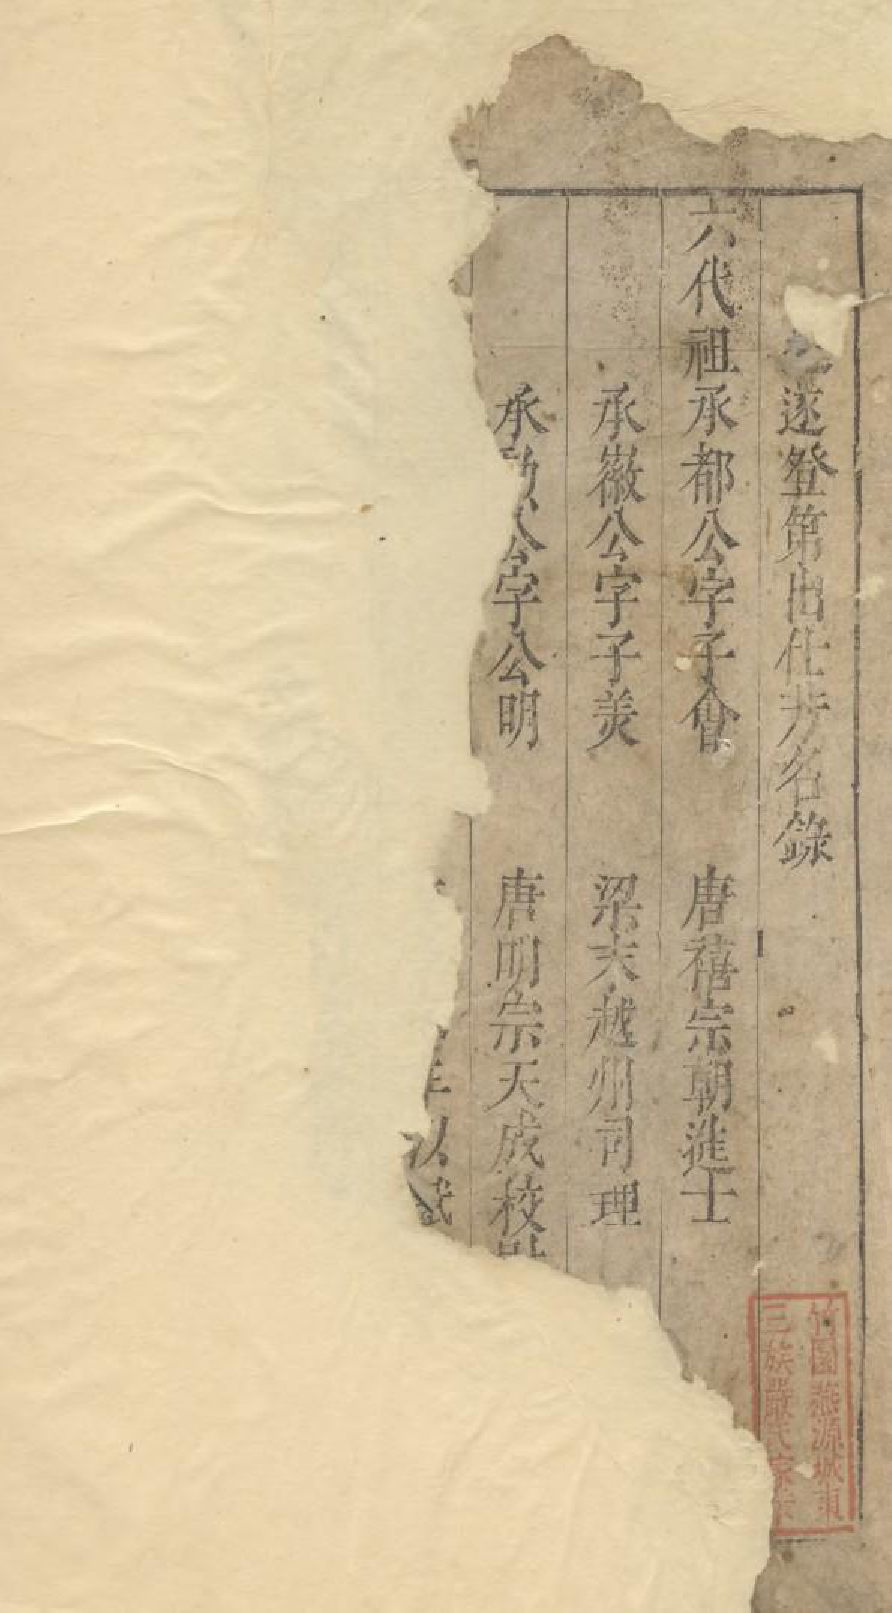 遂登第出仕芳名錄
六代祖承都公字子會 唐禧宗朝進士
承徽公字子羙 梁末越州司理
承 公字公明 唐明宗天成校
以
竹園燕源城東
三族嚴氏家